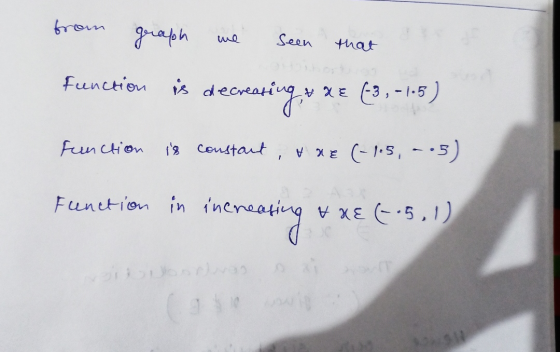 from graph we seen that
Function is decreasing, ∀ x ε (-3, -1.5)
Function is constant, ∀ x ε (-1.5, -.5)
Function in increasing ∀ x ε (-.5, 1)